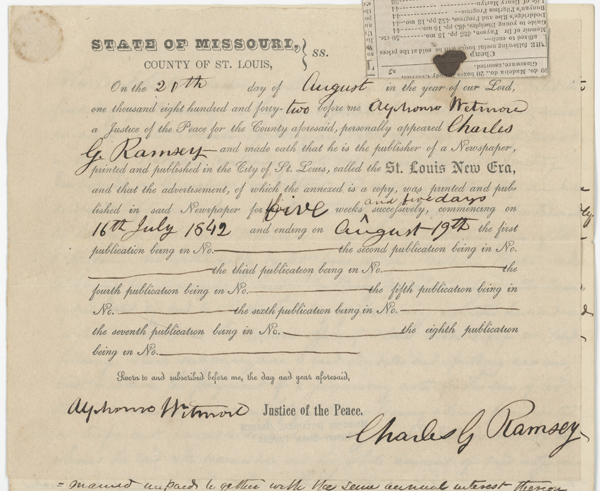 STATE OF MISSOURI, } ss.
COUNTY OF ST. LOUIS,
On the 20th day of August in the year of our Lord,
one thousand eight hundred and forty-two before me Alphonso Wetmore
a Justice of the Peace for the County aforesaid, personally appeared Charles
G. Ramsey and made oath that he is the publisher of a Newspaper,
printed and published in the City of St. Louis, called the St. Louis New Era,
and that the advertisement, of which the annexed is a copy, was printed and pub-
lished in said Newspaper for five weeks and five days successively, commencing on
16th July 1842 and ending on August 19th the first
publication being in No. the second publication being in No.
the third publication being in No. the
fourth publication being in No. the fifth publication being in
No. the sixth publication being in No.
the seventh publication being in No. the eighth publication
being in No.
Sworn to and subscribed before me, the day and year aforesaid,
Alphonso Wetmore Justice of the Peace.
Charles G Ramsey
unpaid together with the same annual interest thereon